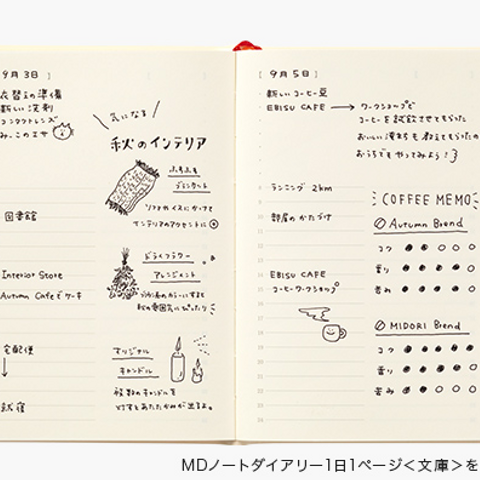 9月3日 ]
衣替えの準備
新しい洗剤
コンタクトレンズ
みーこのエサ
図書館
Interior Store
Autumn Cafeでケーキ
宅配便
就寝
気になる
秋のインテリア
ブランケット
ソファやイスにかけて
インテリアのアクセントに◎
ドライフラワー
アレンジメント
秋の雰囲気にぴったり
オリジナル
キャンドル
複数のキャンドルを
灯すとあたたかみが出るよ。
[ 9月5日 ]
新しいコーヒー豆
EBISU CAFE → ワークショップで
コーヒーを試飲させてもらう
おいしい淹れ方も教えてもらったので
おうちでもやってみよう!
ランニング 2km
部屋のかたづけ
EBISU CAFE
コーヒーワークショップ
COFFEE MEMO
Autumn Blend
コク ●●○○○
香り ●●●●●
苦み ●●●●●
MIDORI Blend
コク ●●●●●
香り ●●●●●
苦み ●●●○○
MDノートダイアリー1日1ページ<文庫>を